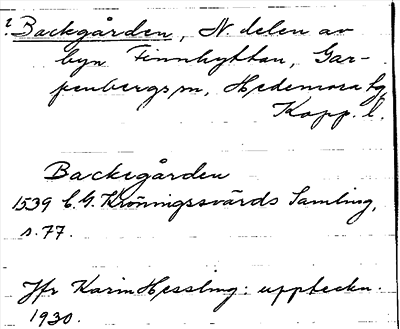 ? Backgården, N. delen av
byn Finnhyttan, Gar-
penbergs sn, Hedemora tg,
Kopp. l.
Backegården
1539 C.G. Kröningssvärds Samling,
s. 77.
Jfr Karin Hessling: uppteckn.
1930.